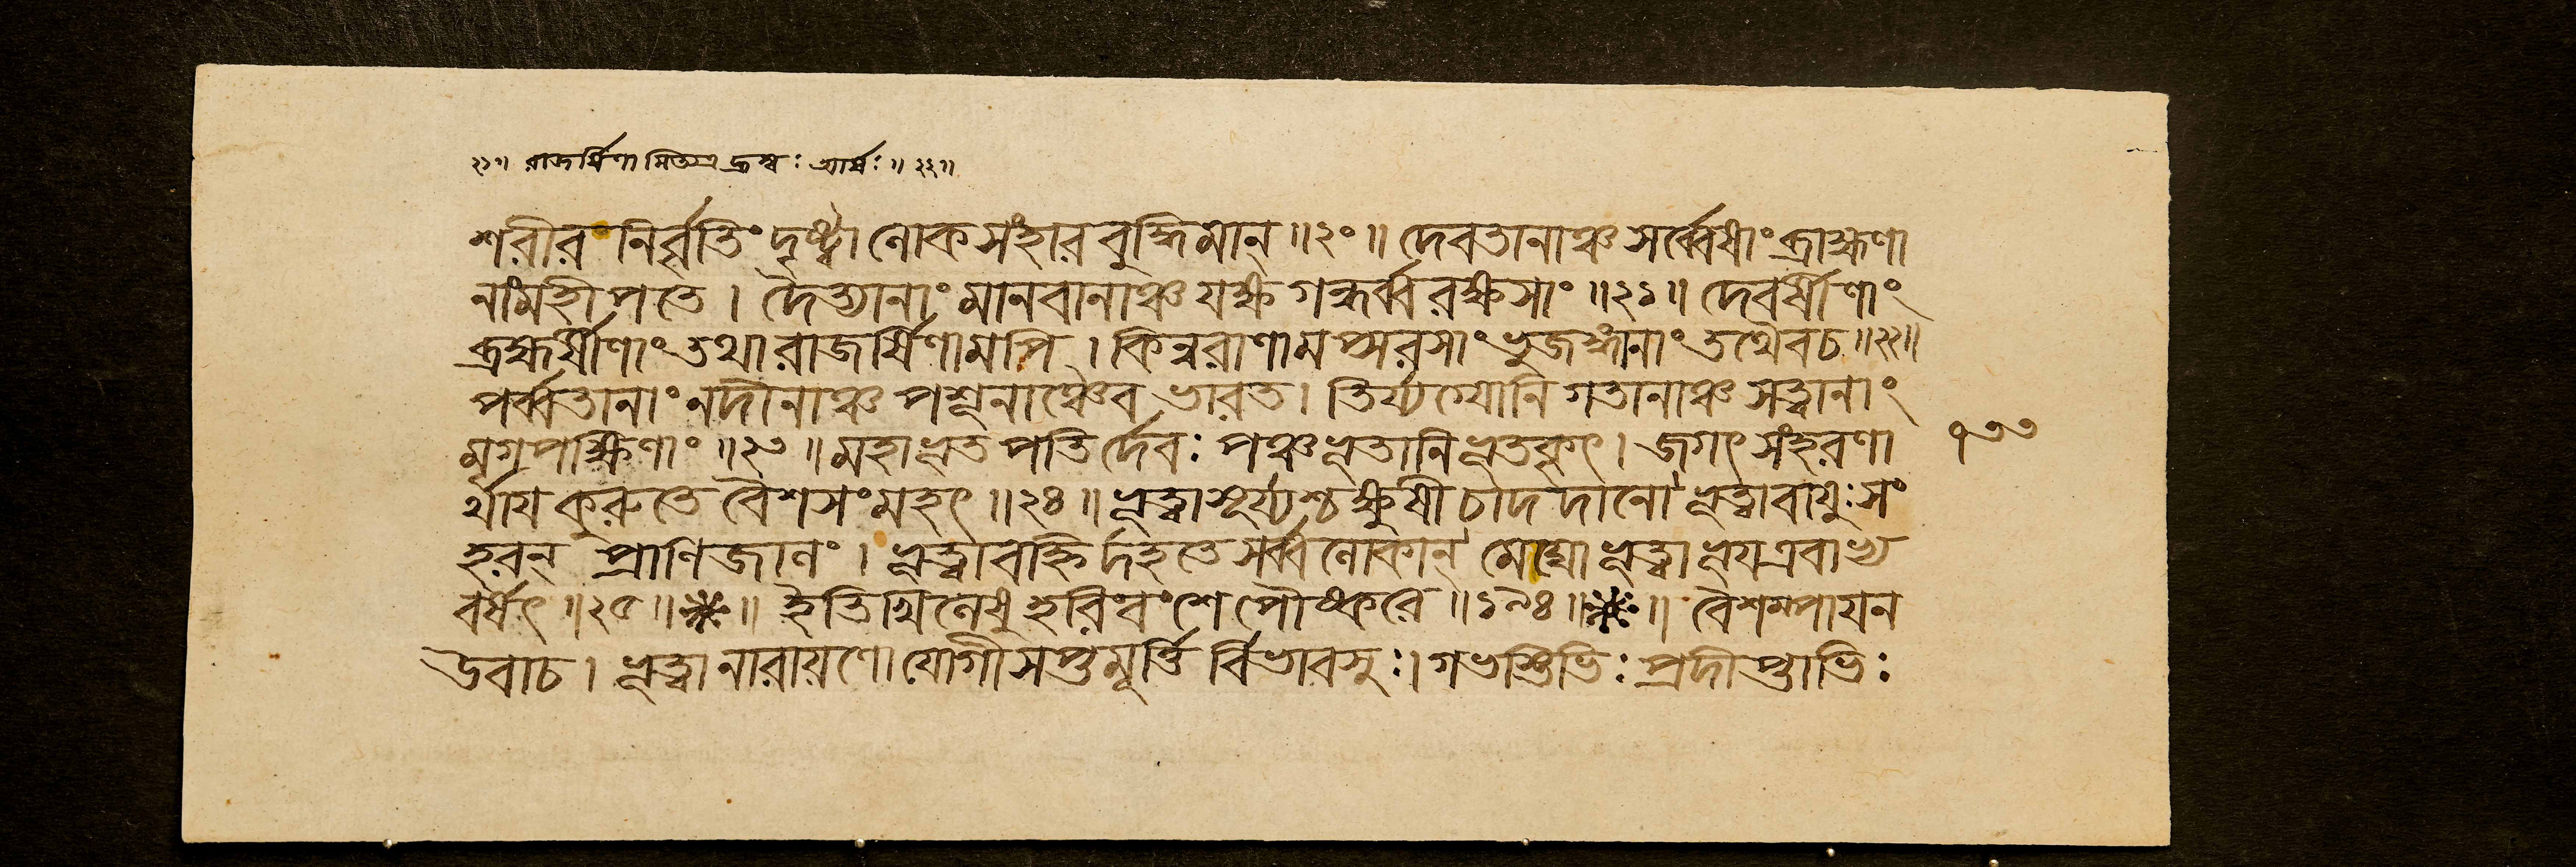 ২১॥ রাজর্ষিণামিত্যত্র হ্রস্বঃ আর্ষঃ॥২২॥
শরীরং নির্ব্বৃতিং দৃষ্ট্বা লোকসংহারবুদ্ধিমান্॥২০॥ দেবতানাঞ্চ সর্ব্বেষাং ব্রাহ্মণা
নাং মহীপতে। দৈত্যানাং মানবানাঞ্চ যক্ষগন্ধর্ব্বরক্ষসাং॥২১॥ দেবর্ষীণাং
ব্রহ্মর্ষীণাং তথা রাজর্ষিণামপি। কিন্নরাণামপ্সরসাং ভুজঙ্গানাং তথৈবচ॥২২॥
পর্ব্বতানাং নদীনাঞ্চ পশূনাঞ্চৈব ভারত। তির্য্যগ্যোনিগতানাঞ্চ সত্ত্বানাং
মৃগপক্ষিণাং॥২৩॥ মহাভূতপতির্দেবঃ পঞ্চভূতানি ভূতকৃৎ। জগৎসংহরণা
র্থায় কুরুতে বৈশসং মহৎ॥২৪॥ ভূত্বা সূর্য্যশ্চক্ষুষী চাদদানো ভূত্বা বায়ুঃ সং
হরন্ প্রাণিজালং। ভূত্বা বহ্নির্দহতে সর্ব্বলোকান্ মেঘো ভূত্বা ভূয় এবাভ্য
বর্ষৎ॥২৫॥❋॥ ইতি খিলেষু হরিবংশে পৌষ্করে॥১৯৪॥❋॥ বৈশম্পায়ন
উবাচ। ভূত্বা নারায়ণো যোগী সপ্তমূর্ত্তির্বিভাবসুঃ। গভস্তিভিঃ প্রদীপ্তাভিঃ
১৩৩